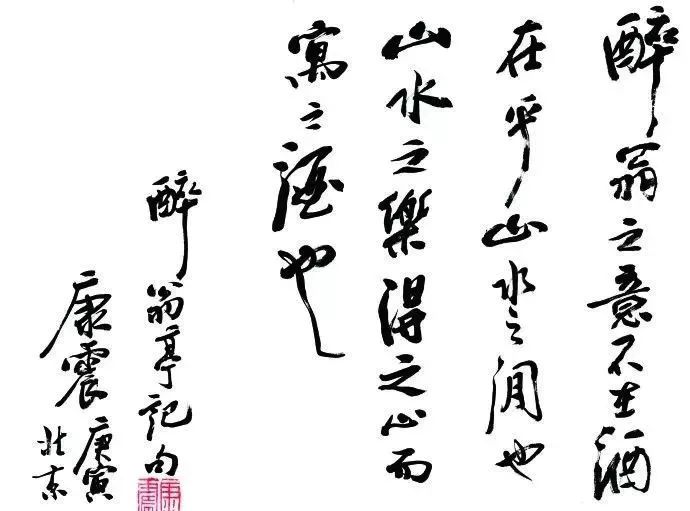 醉翁之意不在酒
在乎山水之間也
山水之樂得之心而
寓之酒也
醉翁亭記句
康震庚寅
北京